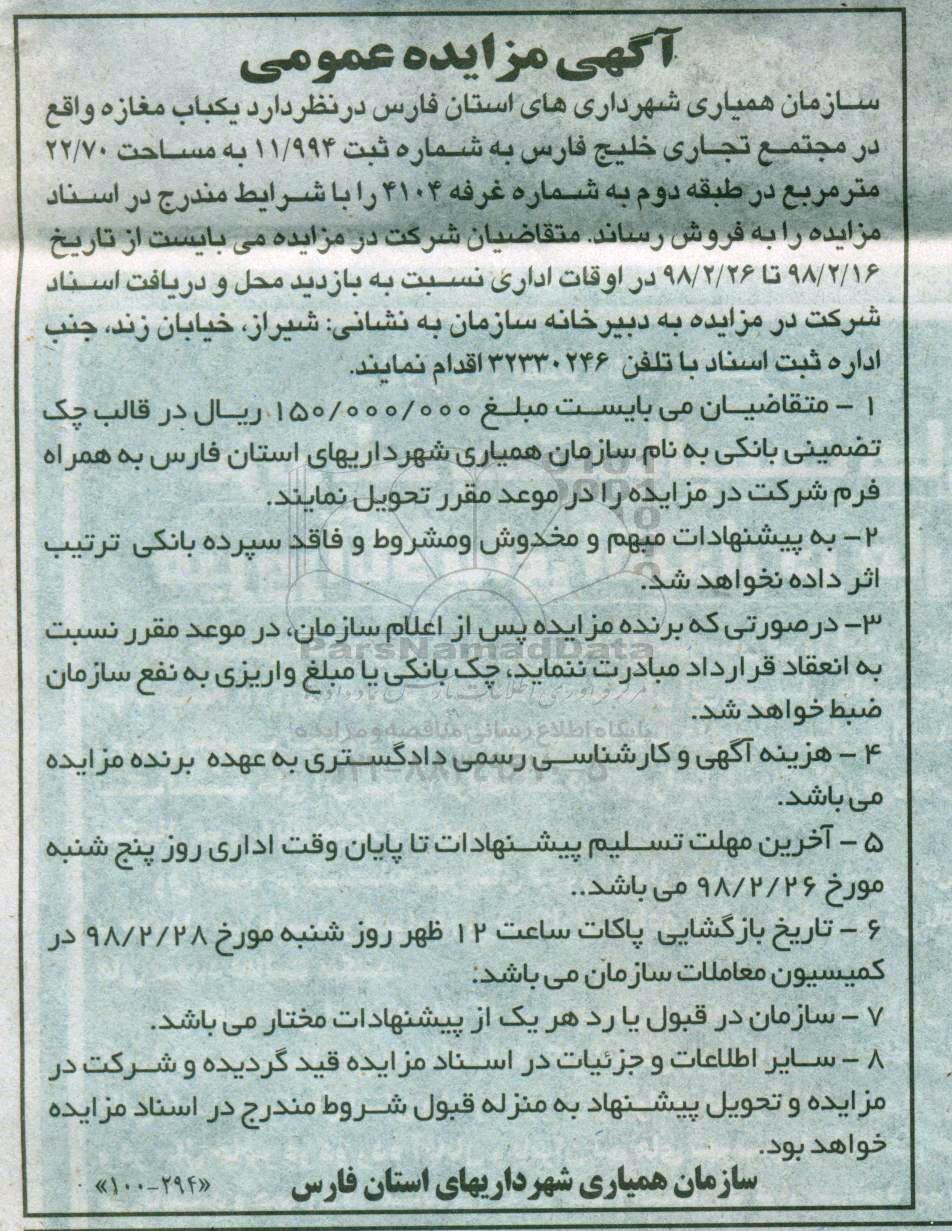 آگهی مزایده عمومی
سازمان همیاری شهرداری های استان فارس درنظردارد یکباب مغازه واقع
در مجتمع تجاری خلیج فارس به شماره ثبت ۱۱/۹۹۴ به مساحت ۲۲/۷۰
مترمربع در طبقه دوم به شماره غرفه ۴۱۰۴ را با شرایط مندرج در اسناد
مزایده را به فروش رساند. متقاضیان شرکت در مزایده می بایست از تاریخ
۹۸/۲/۱۶ تا ۹۸/۲/۲۶ در اوقات اداری نسبت به بازدید محل و دریافت اسناد
شرکت در مزایده به دبیرخانه سازمان به نشانی: شیراز، خیابان زند، جنب
اداره ثبت اسناد با تلفن ۳۲۳۳۰۲۴۶ اقدام نمایند.
۱ - متقاضیان می بایست مبلغ ۱۵۰/۰۰۰/۰۰۰ ریال در قالب چک
تضمینی بانکی به نام سازمان همیاری شهرداریهای استان فارس به همراه
فرم شرکت در مزایده را در موعد مقرر تحویل نمایند.
۲- به پیشنهادات مبهم و مخدوش ومشروط و فاقد سپرده بانکی ترتیب
اثر داده نخواهد شد.
۳- درصورتی که برنده مزایده پس از اعلام سازمان، در موعد مقرر نسبت
به انعقاد قرارداد مبادرت ننماید، چک بانکی یا مبلغ واریزی به نفع سازمان
ضبط خواهد شد.
۴ - هزینه آگهی و کارشناسی رسمی دادگستری به عهده برنده مزایده
می باشد.
۵ - آخرین مهلت تسلیم پیشنهادات تا پایان وقت اداری روز پنج شنبه
مورخ ۹۸/۲/۲۶ می باشد..
۶ - تاریخ بازگشایی پاکات ساعت ۱۲ ظهر روز شنبه مورخ ۹۸/۲/۲۸ در
کمیسیون معاملات سازمان می باشد:
۷ - سازمان در قبول یا رد هر یک از پیشنهادات مختار می باشد.
۸ - سایر اطلاعات و جزئیات در اسناد مزایده قید گردیده و شرکت در
مزایده و تحویل پیشنهاد به منزله قبول شروط مندرج در اسناد مزایده
خواهد بود.
سازمان همیاری شهرداریهای استان فارس
«۱۰۰-۲۹۴»
ParsNamadData
پایگاه اطلاع رسانی مناقصه و مزایده